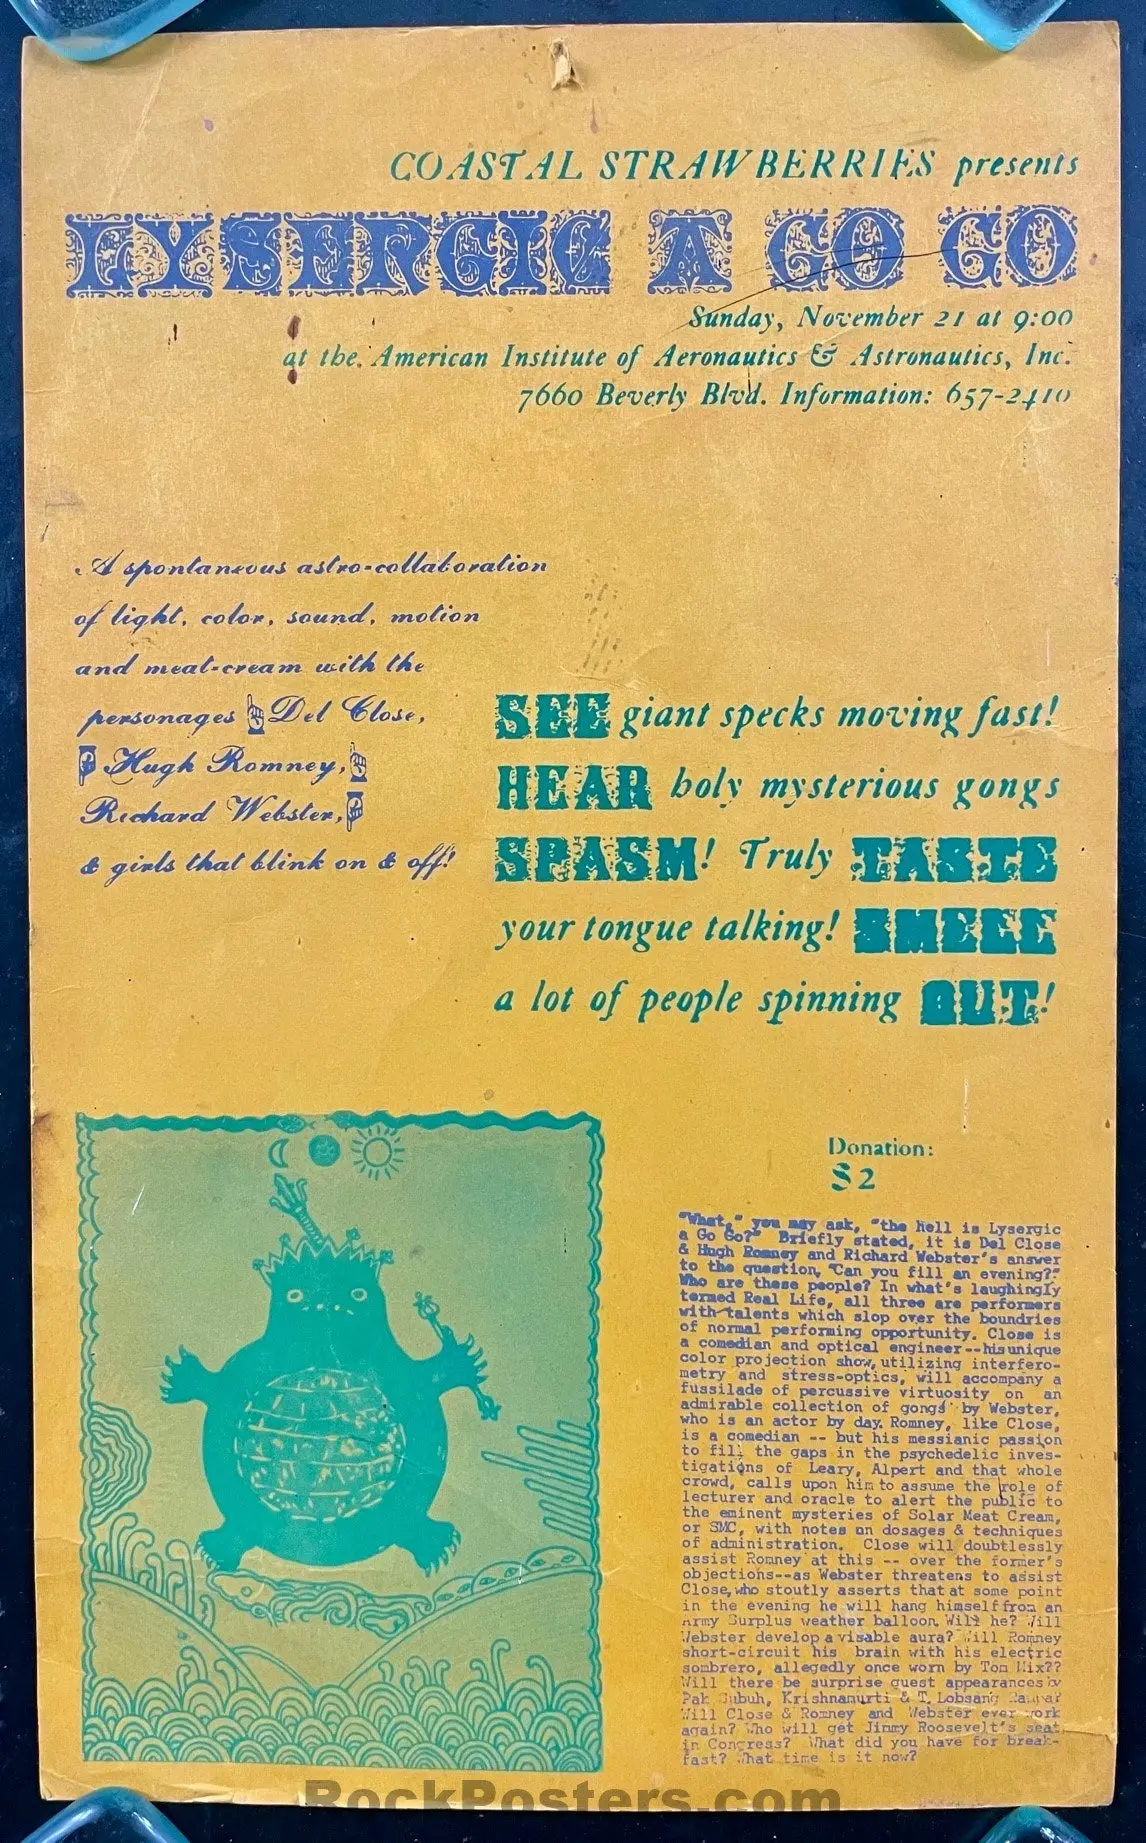 COASTAL STRAWBERRIES presents
LYSERGIC A GO GO
Sunday, November 21 at 9:00
at the American Institute of Aeronautics & Astronautics, Inc.
7660 Beverly Blvd. Information: 657-2410
A spontaneous astro-collaboration
of light, color, sound, motion
and meat-cream with the
personages Del Close,
Hugh Romney,
Richard Webster,
& girls that blink on & off!
SEE giant specks moving fast!
HEAR holy mysterious gongs
SPASM! Truly TASTE
your tongue talking! SMELL
a lot of people spinning OUT!
Donation:
$2
"What," you may ask, "the hell is Lysergic
a Go Go?" Briefly stated, it is Del Close
& Hugh Romney and Richard Webster's answer
to the question, "Can you fill an evening?"
Who are these people? In what's laughingly
termed Real Life, all three are performers
with talents which slop over the boundries
of normal performing opportunity. Close is
a comedian and optical engineer--his unique
color projection show, utilizing interfero-
metry and stress-optics, will accompany a
fussilade of percussive virtuosity on an
admirable collection of gongs by Webster,
who is an actor by day. Romney, like Close,
is a comedian -- but his messianic passion
to fill the gaps in the psychedelic inves-
tigations of Leary, Alpert and that whole
crowd, calls upon him to assume the role of
lecturer and oracle to alert the public to
the eminent mysteries of Solar Meat Cream,
or SMC, with notes on dosages & techniques
of administration. Close will doubtlessly
assist Romney at this -- over the former's
objections--as Webster threatens to assist
Close, who stoutly asserts that at some point
in the evening he will hang himself from an
Army Surplus weather balloon. Will he? Will
Webster develop a visable aura? Will Romney
short-circuit his brain with his electric
sombrero, allegedly once worn by Tom Mix??
Will there be surprise guest appearances by
Pak Subuh, Krishnamurti & T. Lobsang Rampa?
Will Close & Romney and Webster ever work
again? Who will get Jimmy Roosevelt's seat
in Congress? What did you have for break-
fast? What time is it now?
RockPosters.com